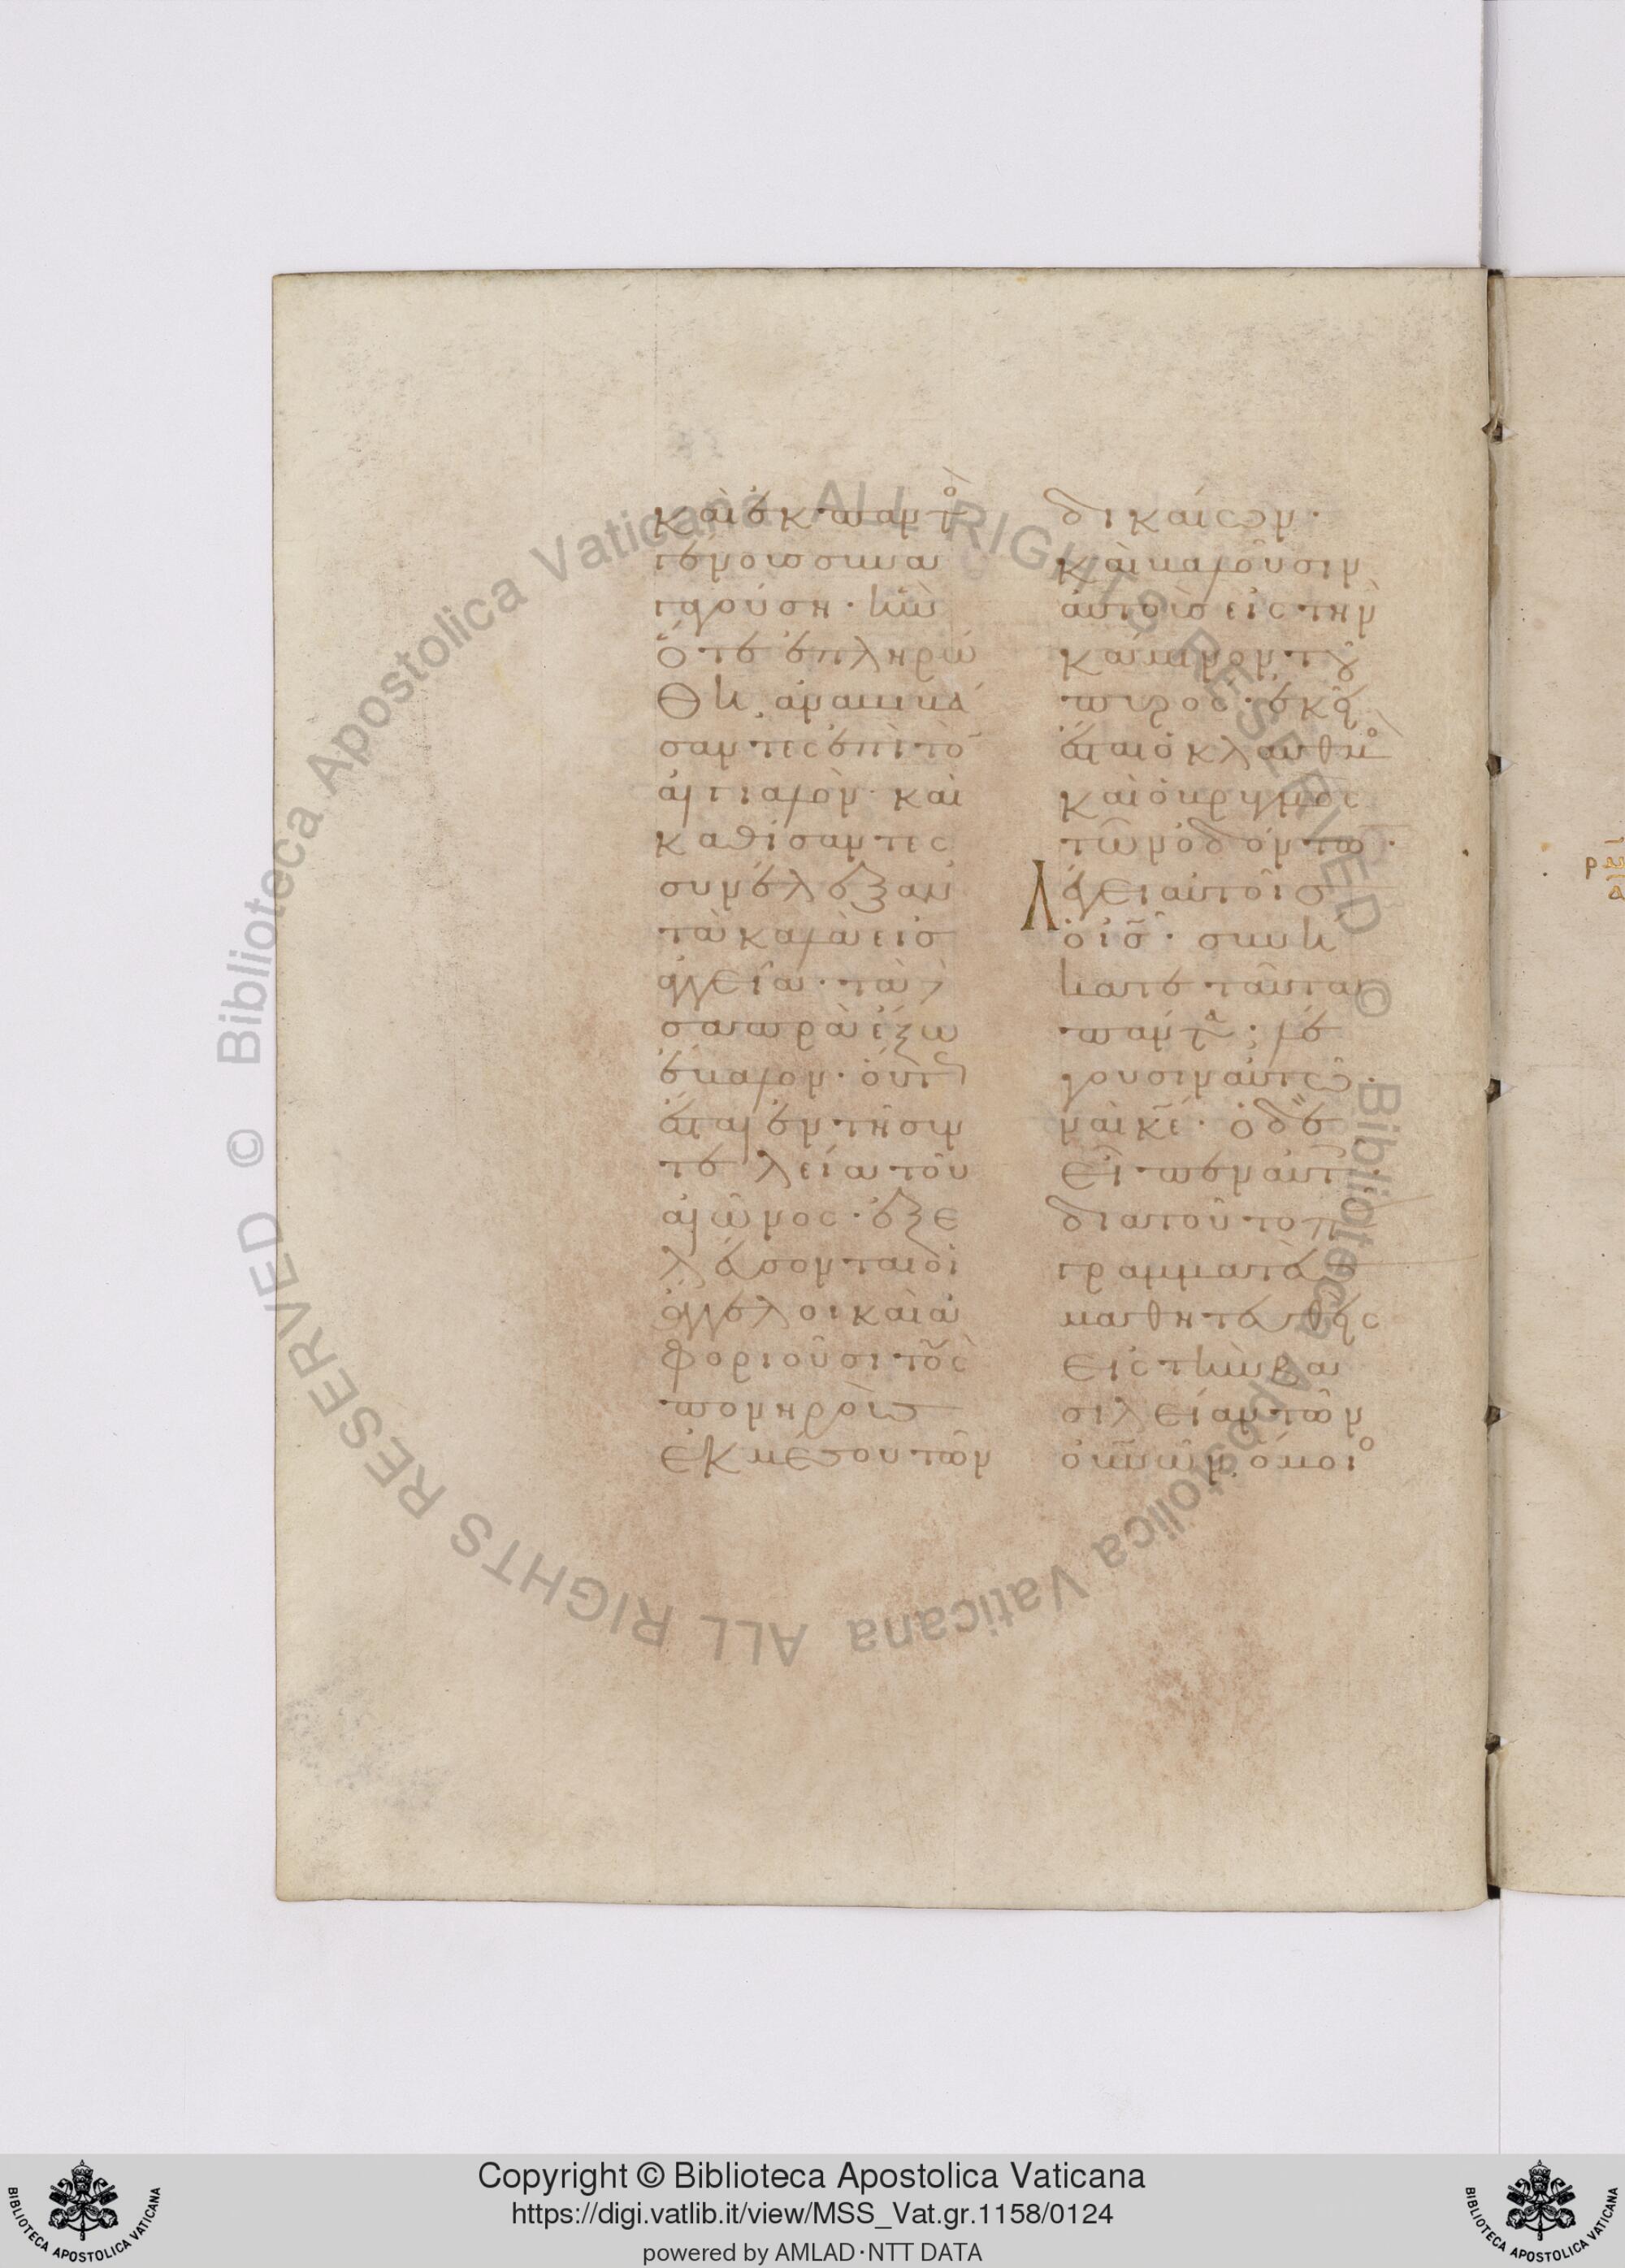 καὶ ἐκ παντὸ
γένουσ συνα
γαγούση· ἣν
ὅτε ἐπληρώ
θη, ἀναβιβά
σαντες ἐπὶ τὸ
αἰγιαλὸν· καὶ
καθίσαντες
συνέλεξαν
τὰ καλὰ εἰσ
ἀγγεῖα· τὰ δὲ
σαπρὰ ἔξω
ἔβαλον· οὕτως
ἔσται ἐν τῆ συν
τελεία τοῦ
αἰῶνος· ἐξε
λεύσονται οἱ
ἄγγελοι καὶ ἀ
φοριοῦσι τοὺς
πονηροὺσ
ἐκ μέσου τῶν
δικαίων·
καὶ βαλοῦσιν
αὐτοὺσ εἰς τὴν
κάμινον τοῦ
πυρός· ἐκεῖ
ἔσται ὁ κλαυθμὸ
καὶ ὁ βρυγμὸς
τῶν ὀδόντων·
Λέγει αὐτοῖσ
ὁ ισ̅· συνή
κατε ταῦτα
πάντα; λέ
γουσιν αὐτῶ·
ναὶ κ̅ε̅· ὁ δὲ
εἶπεν αὐτοῖς·
διὰ τοῦτο πᾶς
γραμματεὺσ
μαθητευθεὶς
εἰς τὴν βα
σιλείαν τῶν
οὐ̅νῶν, ὅμοιο
Copyright © Biblioteca Apostolica Vaticana
https://digi.vatlib.it/view/MSS_Vat.gr.1158/0124
powered by AMLAD·NTT DATA
© Biblioteca Apostolica Vaticana ALL RIGHTS RESERVED
© Biblioteca Apostolica Vaticana ALL RIGHTS RESERVED
BIBLIOTECA APOSTOLICA VATICANA
BIBLIOTECA APOSTOLICA VATICANA